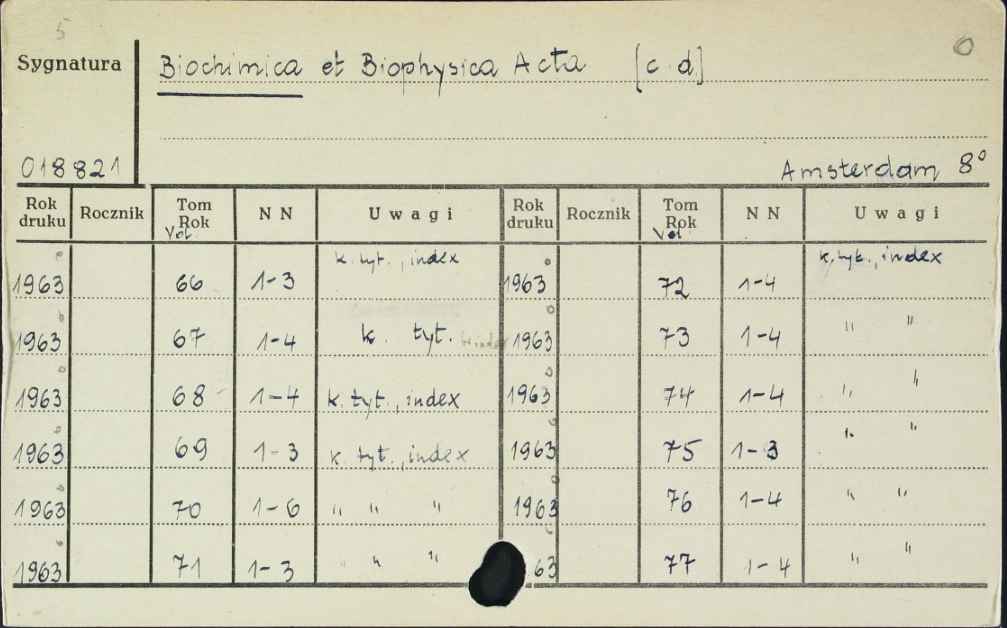 5
Sygnatura Biochimica et Biophysica Acta [c d] 0
018821 Amsterdam 8°
Rok druku Rocznik Tom Rok Vol N N Uwagi Rok druku Rocznik Tom Rok Vol N N Uwagi
1963 66 1-3 k. tyt., index 1963 72 1-4 k. tyt., index
1963 67 1-4 k. tyt. 1963 73 1-4 " "
1963 68 1-4 k. tyt., index 1963 74 1-4 " "
1963 69 1-3 k. tyt., index 1963 75 1-3 " "
1963 70 1-6 " " " 1963 76 1-4 " "
1963 71 1-3 " " " 63 77 1-4 " "